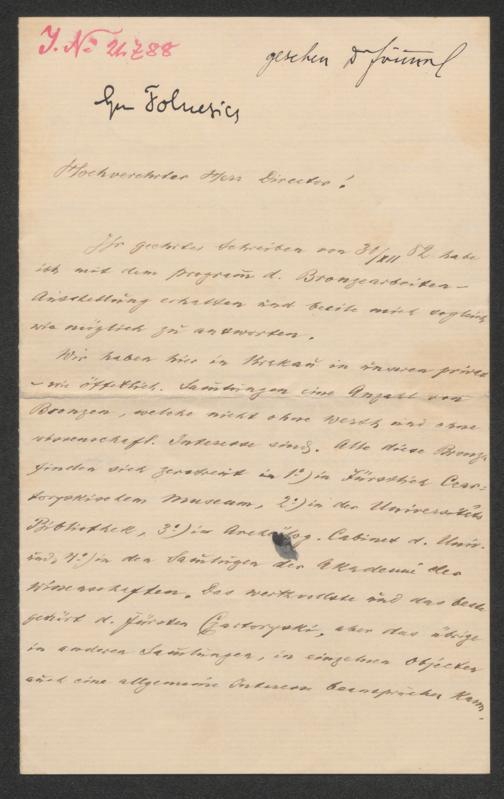 J. No 21788
gesehen Dr
Hr Folnesics
Hochverehrter Herr Director!
Ihr geehrter Schreiben von 30/XII 82 habe
ich mit dem Program̄ d. Bronzearbeiten-
Ausstellung erhalten und beeile mich sogleich
wie möglich zu antworten.
Wir haben hier in Krakau in unseren privat
– wie öffetlich. Sam̄lungen eine Anzahl von
Bronzen, welche nicht ohne Werth und ohne
wissenschaftl. Interesse sind. Alle diese Bronze
finden sich zerstreut in 1o) im Fürstlich Czar=
toryskischem Museum, 2o) in der Universitäts
Bibliothek, 3o) im Archäolog. Cabinet d. Univ.
und, 4o) in den Sam̄lungen der Akademie der
Wissenschaften. Das werthvollste und das beste
gehört d. Fürsten Czartoryski, aber das übrige
in anderen Sam̄lungen, in einzelnen Objecten
auch eine allgemeine Interesse beanspruchen kann.